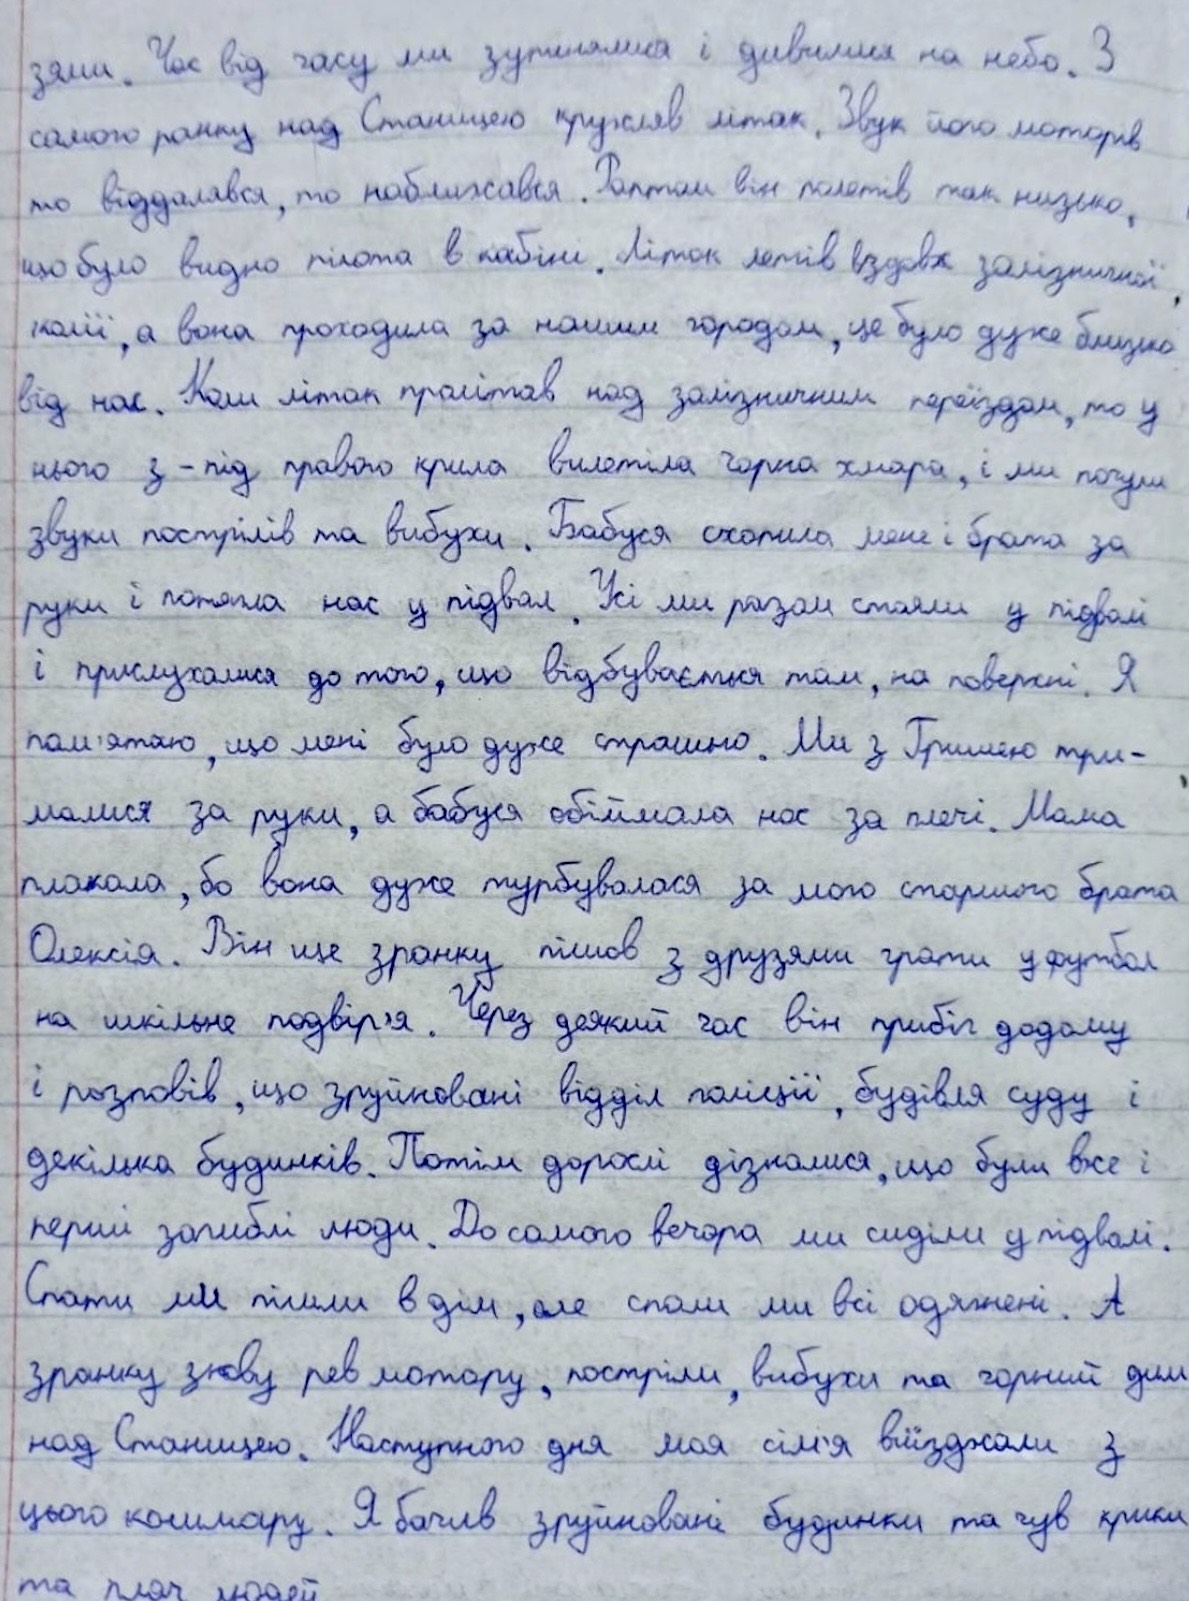 зями. Час від часу ми зупинялися і дивилися на небо. З
самого ранку над Станицею кружляв літак. Звук його моторів
то віддалявся, то наближався. Раптом він полетів так низько,
що було видно пілота в кабіні. Літак летів вздовж залізничної
колії, а вона проходила за нашим городом, це було дуже близько
від нас. Коли літак пролітав над залізничним переїздом, то у
нього з-під правого крила вилетіла чорна хмара, і ми почули
звуки пострілів та вибухи. Бабуся схопила мене і брата за
руки і потягла нас у підвал. Усі ми разом стояли у підвалі
і прислухалися до того, що відбувається там, на поверхні. Я
пам'ятаю, що мені було дуже страшно. Ми з Гришею три-
малися за руки, а бабуся обіймала нас за плечі. Мама
плакала, бо вона дуже турбувалася за мого старшого брата
Олексія. Він ще зранку пішов з друзями грати у футбол
на шкільне подвір'я. Через деякий час він прибіг додому
і розповів, що зруйновані відділ поліції, будівля суду і
декілька будинків. Потім дорослі дізналися, що були вже і
перші загиблі люди. До самого вечора ми сиділи у підвалі.
Спати ми пішли в дім, але спали ми всі одягнені. А
зранку знову рев мотору, постріли, вибухи та чорний дим
над Станицею. Наступного дня моя сім'я виїзджали з
цього кошмару. Я бачив зруйновані будинки та чув крики
та плач людей